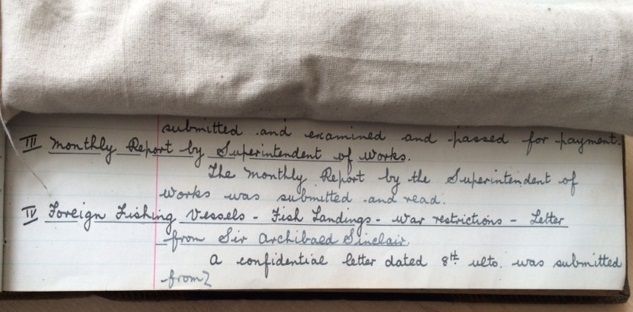 submitted and examined and passed for payment.
III Monthly Report by Superintendent of Works.
The Monthly Report by the Superintendent of
Works was submitted and read.
IV Foreign Fishing Vessels - Fish Landings - War restrictions - Letter
from Sir Archibald Sinclair
A confidential letter dated 8th ulto. was submitted
from